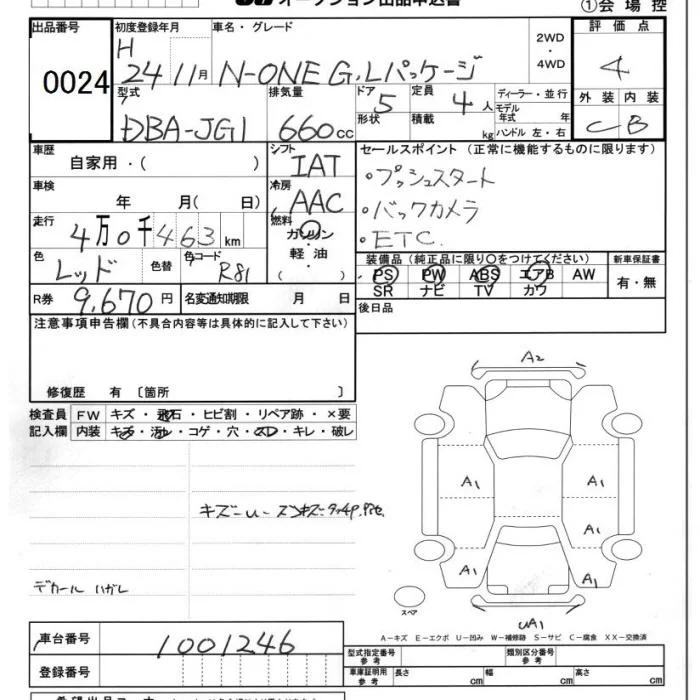 オークション出品申込書
①会場控
出品番号
0024
初度登録年月
H 24 11月
車名・グレード
N-ONE G.Lパッケージ
2WD
・
4WD
評価点
4
型式
DBA-JG1
排気量
660cc
ドア
5
形状
定員
4人
積載
kg
ディーラー・並行
モデル年式 年
ハンドル 左・右
外装 内装
C B
車歴
自家用・( )
シフト
IAT
セールスポイント (正常に機能するものに限ります)
・プッシュスタート
・バックカメラ
・ETC.
車検
年 月( 日)
冷房
AAC
走行
4万0千463km
燃料
ガソリン
・
軽油
・
( )
色
レッド
色替
色コード
R81
装備品 (純正品に限り○をつけてください)
PS PW ABS エアB AW
SR ナビ TV カワ
新車保証書
有・無
R券
9,670円
名変通知期限 月 日
後日品
注意事項申告欄(不具合内容等は具体的に記入して下さい)
修復歴 有 〔箇所 〕
検査員記入欄
FW キズ・飛石・ヒビ割・リペア跡・×要
内装 キズ・汚れ・コゲ・穴・スレ・キレ・破レ
デカール ハガレ
A2
A1
A1
A1
A1
A1
UA1
スペア
A―キズ E―エクボ U―凹み W―補修跡 S―サビ C―腐食 XX―交換済
車台番号
1001246
登録番号
型式指定番号
参考
類別区分番号
参考
車庫証明用
参考
長さ cm
幅 cm
高さ cm